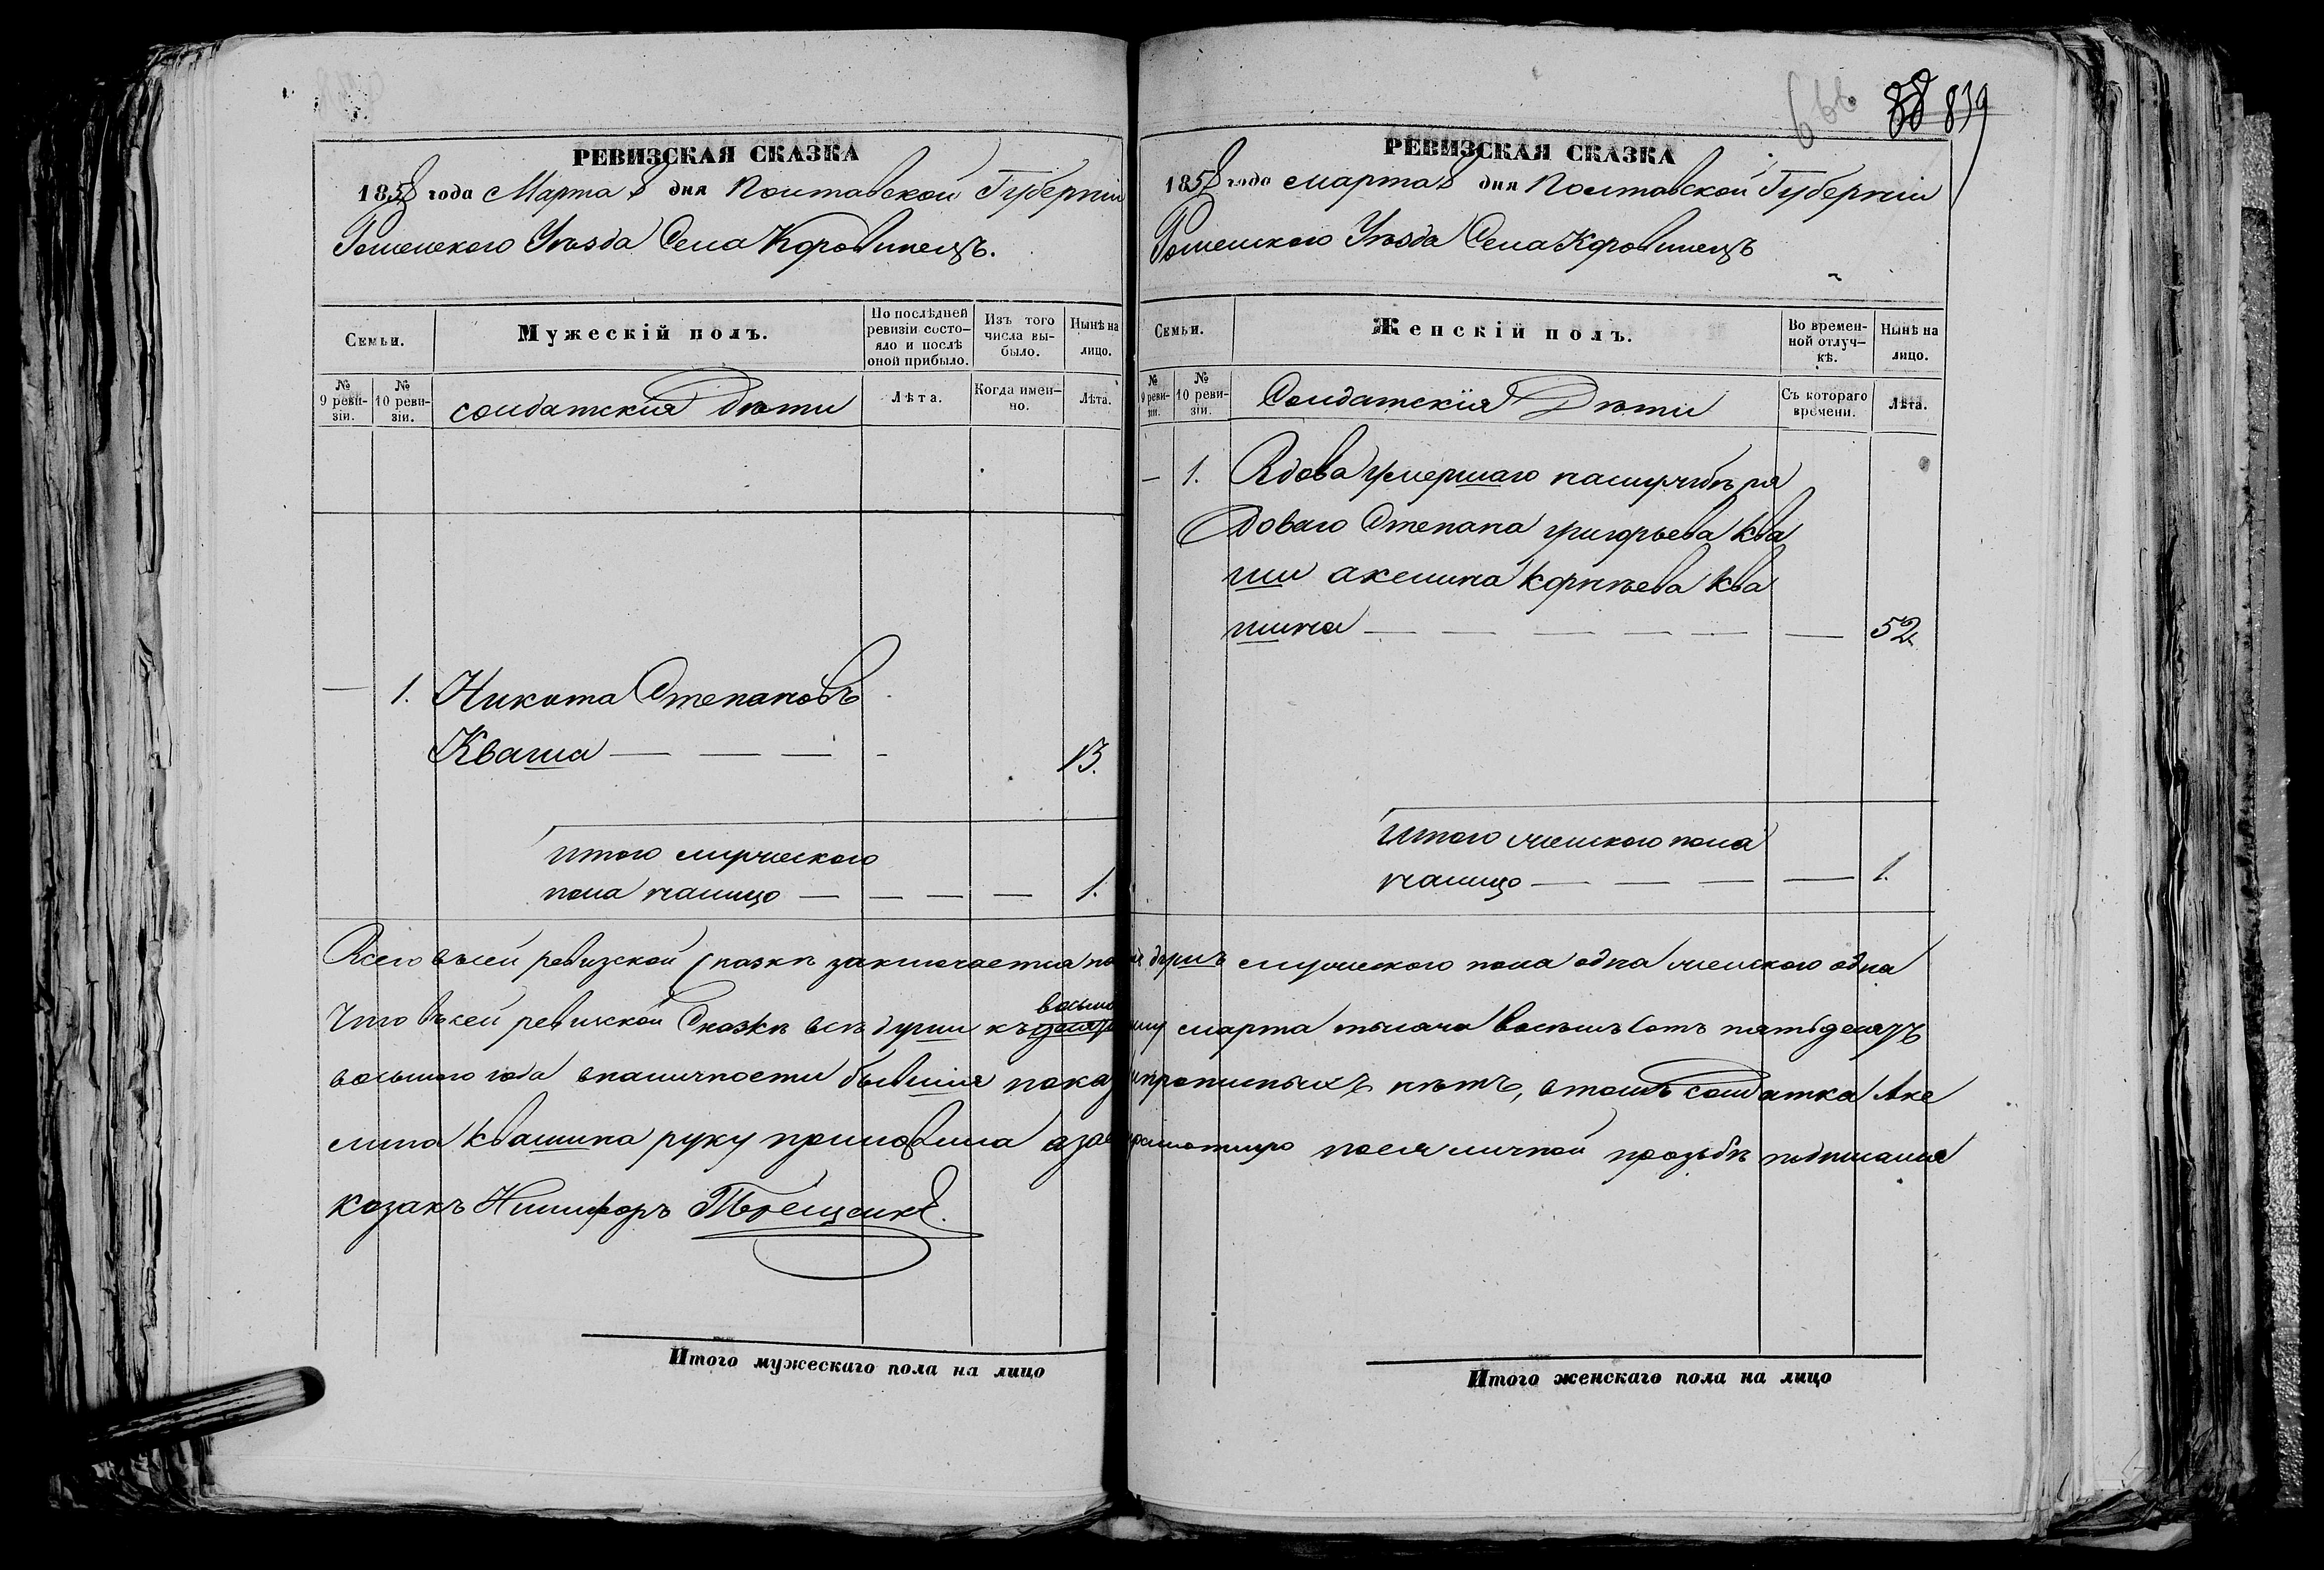 РЕВИЗСКАЯ СКАЗКА
1858 года Марта 8 дня Полтавской Губерніи
Роменского Уѣзда Села Коровинецъ.
Семьи.
Мужескій полъ.
По послѣдней ревизіи состо-
яло и послѣ
оной прибыло.
Изъ того
числа вы-
было.
Нынѣ на
лицо.
№
9 реви-
зіи.
№
10 реви-
зіи.
солдатския Дѣти
Лѣта.
Когда имен-
но.
Лѣта.
— 1. Никита Степановъ
Кваша — — — - 13.
итого мужеского
пола налицо — — — — 1.
66 839
РЕВИЗСКАЯ СКАЗКА
1858 года марта 8 дня Полтавской Губерніи
Роменского Уѣзда Села Коровинецъ
Семьи.
Женскій полъ.
Во времен-
ной отлуч-
кѣ.
Нынѣ на
лицо.
№
9 реви-
зіи.
№
10 реви-
зіи.
Солдатскія Дѣти
Съ котораго
времени.
Лѣта.
— 1. Вдова умершаго наслужбѣ ря
доваго Степана григорьева Ква
ши акелина Корнѣева Ква
шина — — — — — — 52
Итого женского пола
налицо — — — — 1.
Всего въсей ревизской Сказкѣ заключается душъ мужеского пола одна женского одна
Что въсей ревизской Сказкѣ всѣ души къ восьмому марта тысяча восемьсотъ пятьдесятъ
восьмого года вналичности бывшия непрописныхъ нѣтъ, втомъ солдатка Аке
лина Квашина руку приложила неграмотную поея личной прозьбѣ подписался
козакъ Никифоръ
Итого мужескаго пола на лицо
Итого женскаго пола на лицо